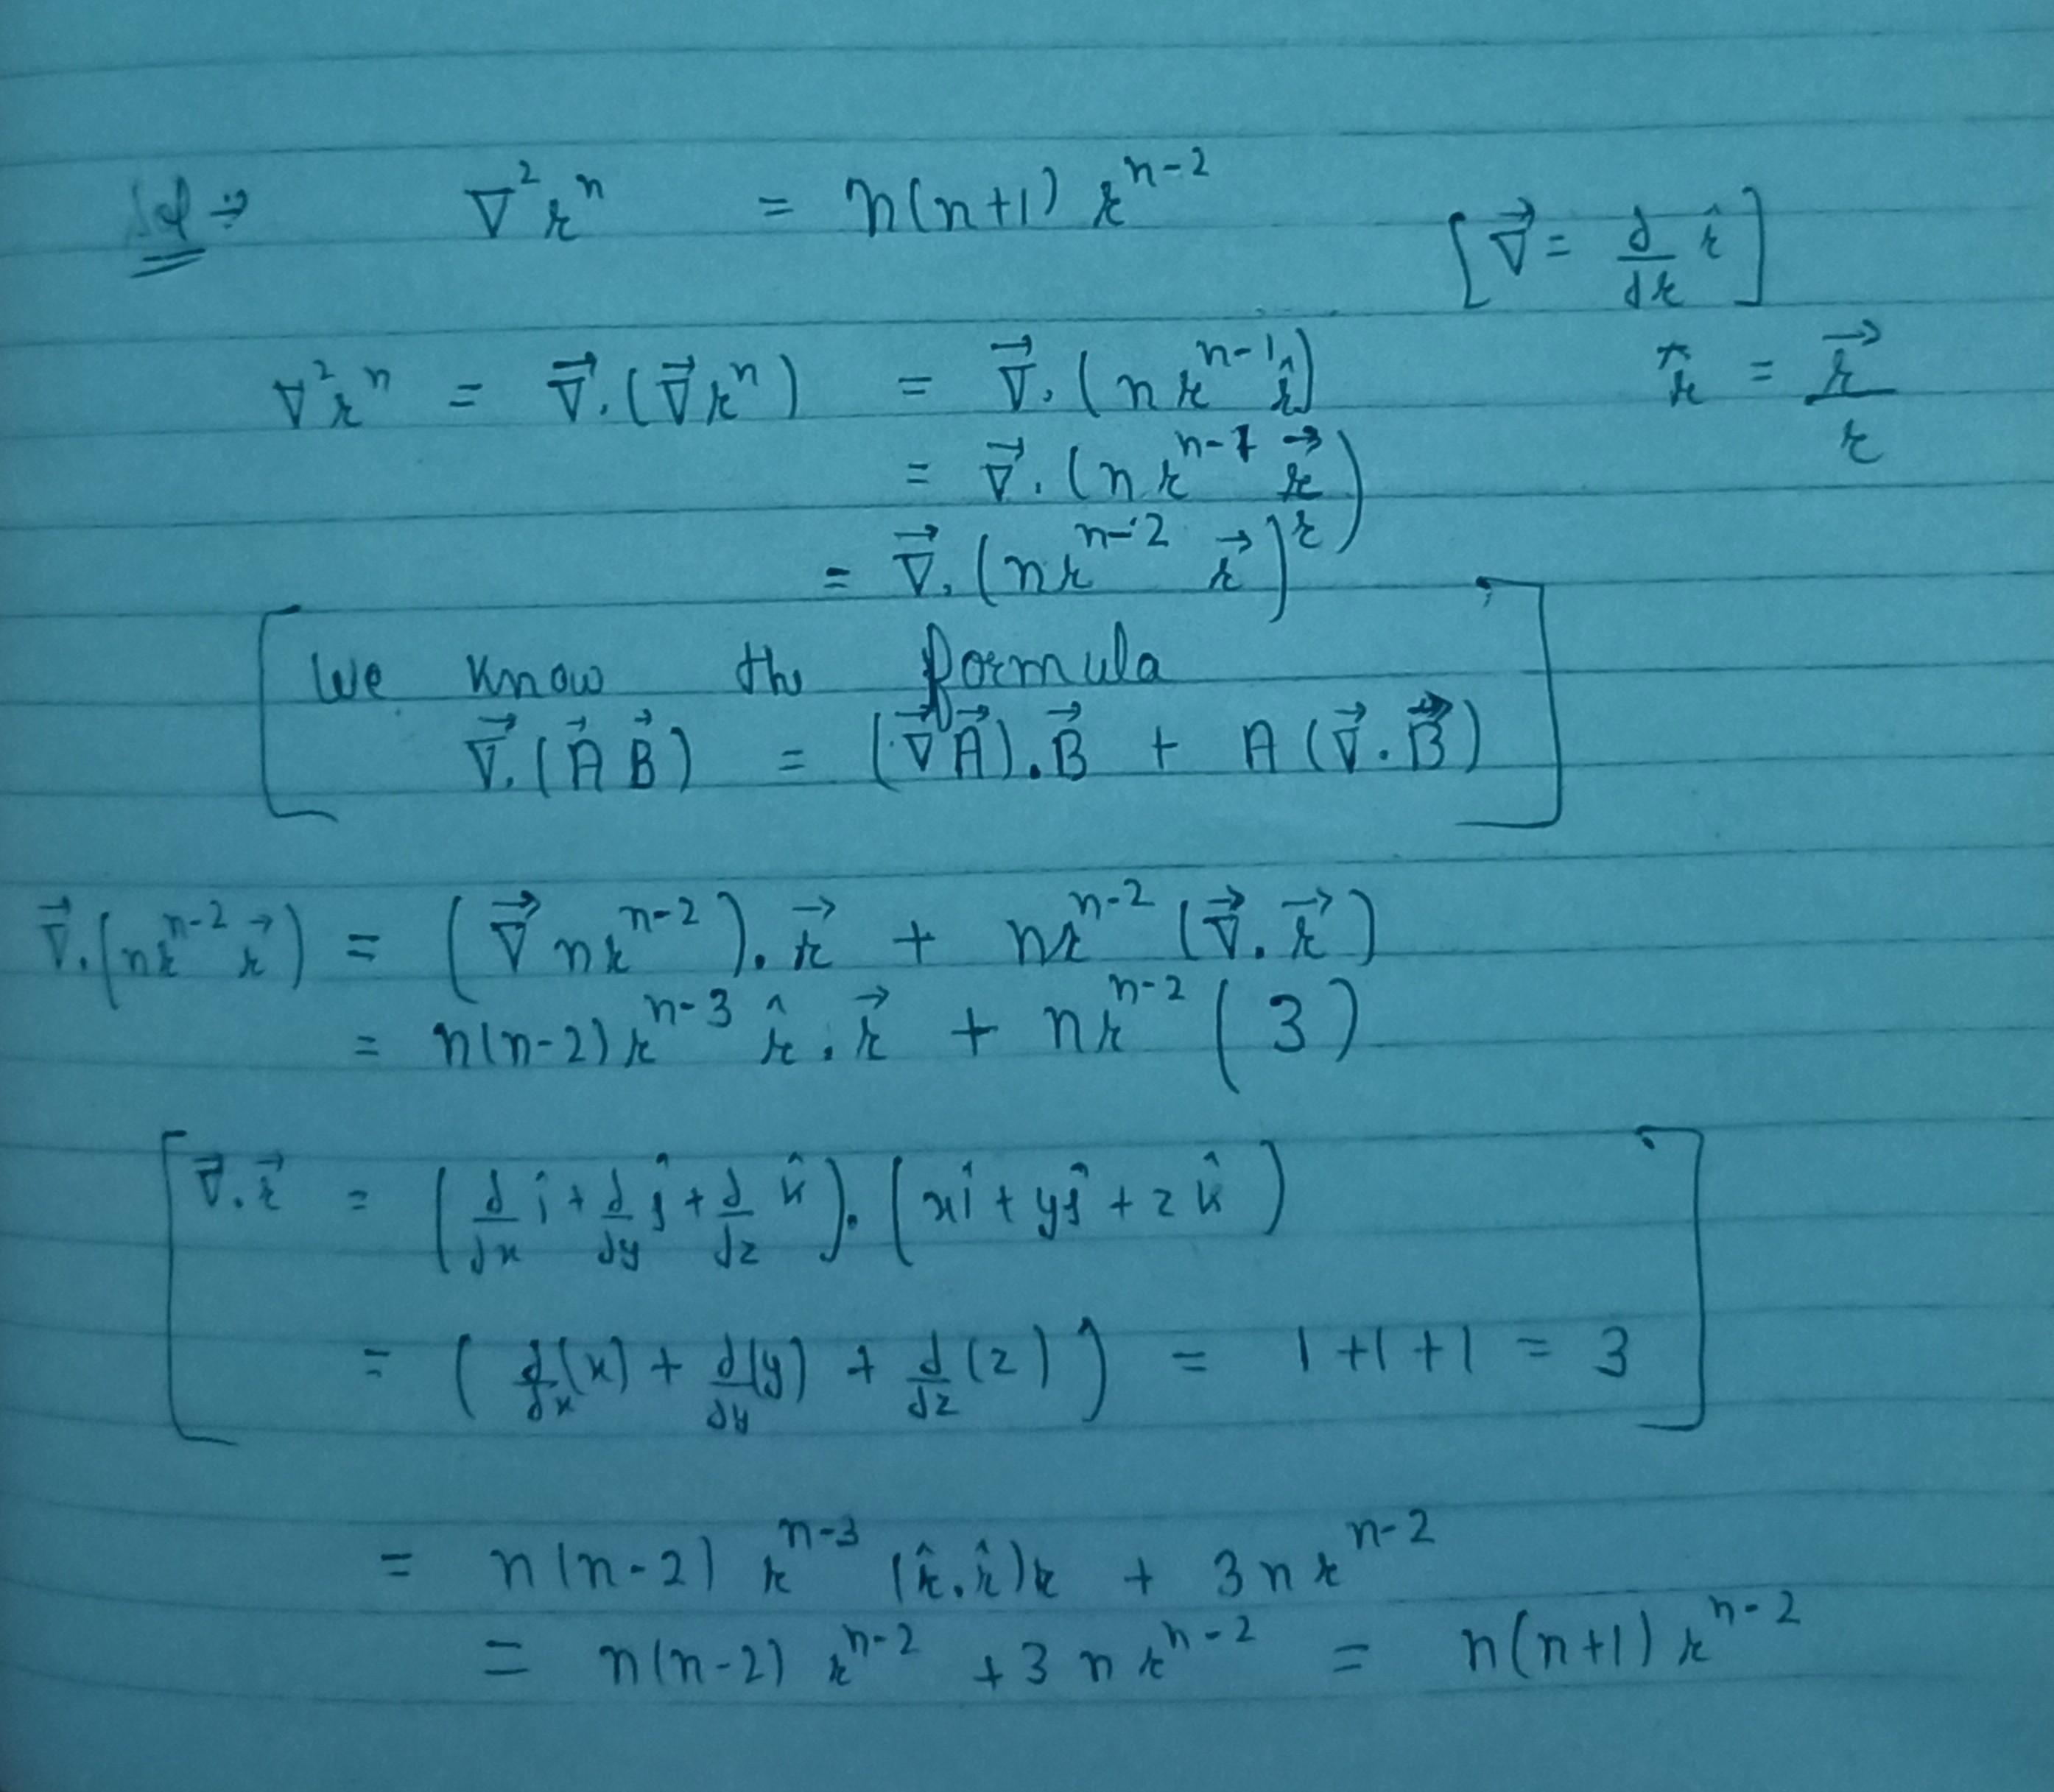 Sol ⇒ ∇²rⁿ = n(n+1) rⁿ⁻² [∇⃗ = d/dr r̂]
∇²rⁿ = ∇⃗.(∇⃗rⁿ) = ∇⃗.(n rⁿ⁻¹ r̂) r̂ = r⃗/r
= ∇⃗.(n rⁿ⁻¹ r⃗/r)
= ∇⃗.(nrⁿ⁻² r⃗)
[We know the formula
∇⃗.(A⃗ B⃗) = (∇⃗A⃗).B⃗ + A(∇⃗.B⃗)]
∇⃗.(nrⁿ⁻² r⃗) = (∇⃗ nrⁿ⁻²).r⃗ + nrⁿ⁻² (∇⃗.r⃗)
= n(n-2)rⁿ⁻³ r̂.r⃗ + nrⁿ⁻² (3)
[∇⃗.r⃗ = (d/dx î + d/dy ĵ + d/dz k̂).(xî + yĵ + zk̂)
= (d/dx(x) + d/dy(y) + d/dz(z)) = 1+1+1 = 3]
= n(n-2) rⁿ⁻³ (r̂.r̂)r + 3nrⁿ⁻²
= n(n-2) rⁿ⁻² + 3nrⁿ⁻² = n(n+1) rⁿ⁻²